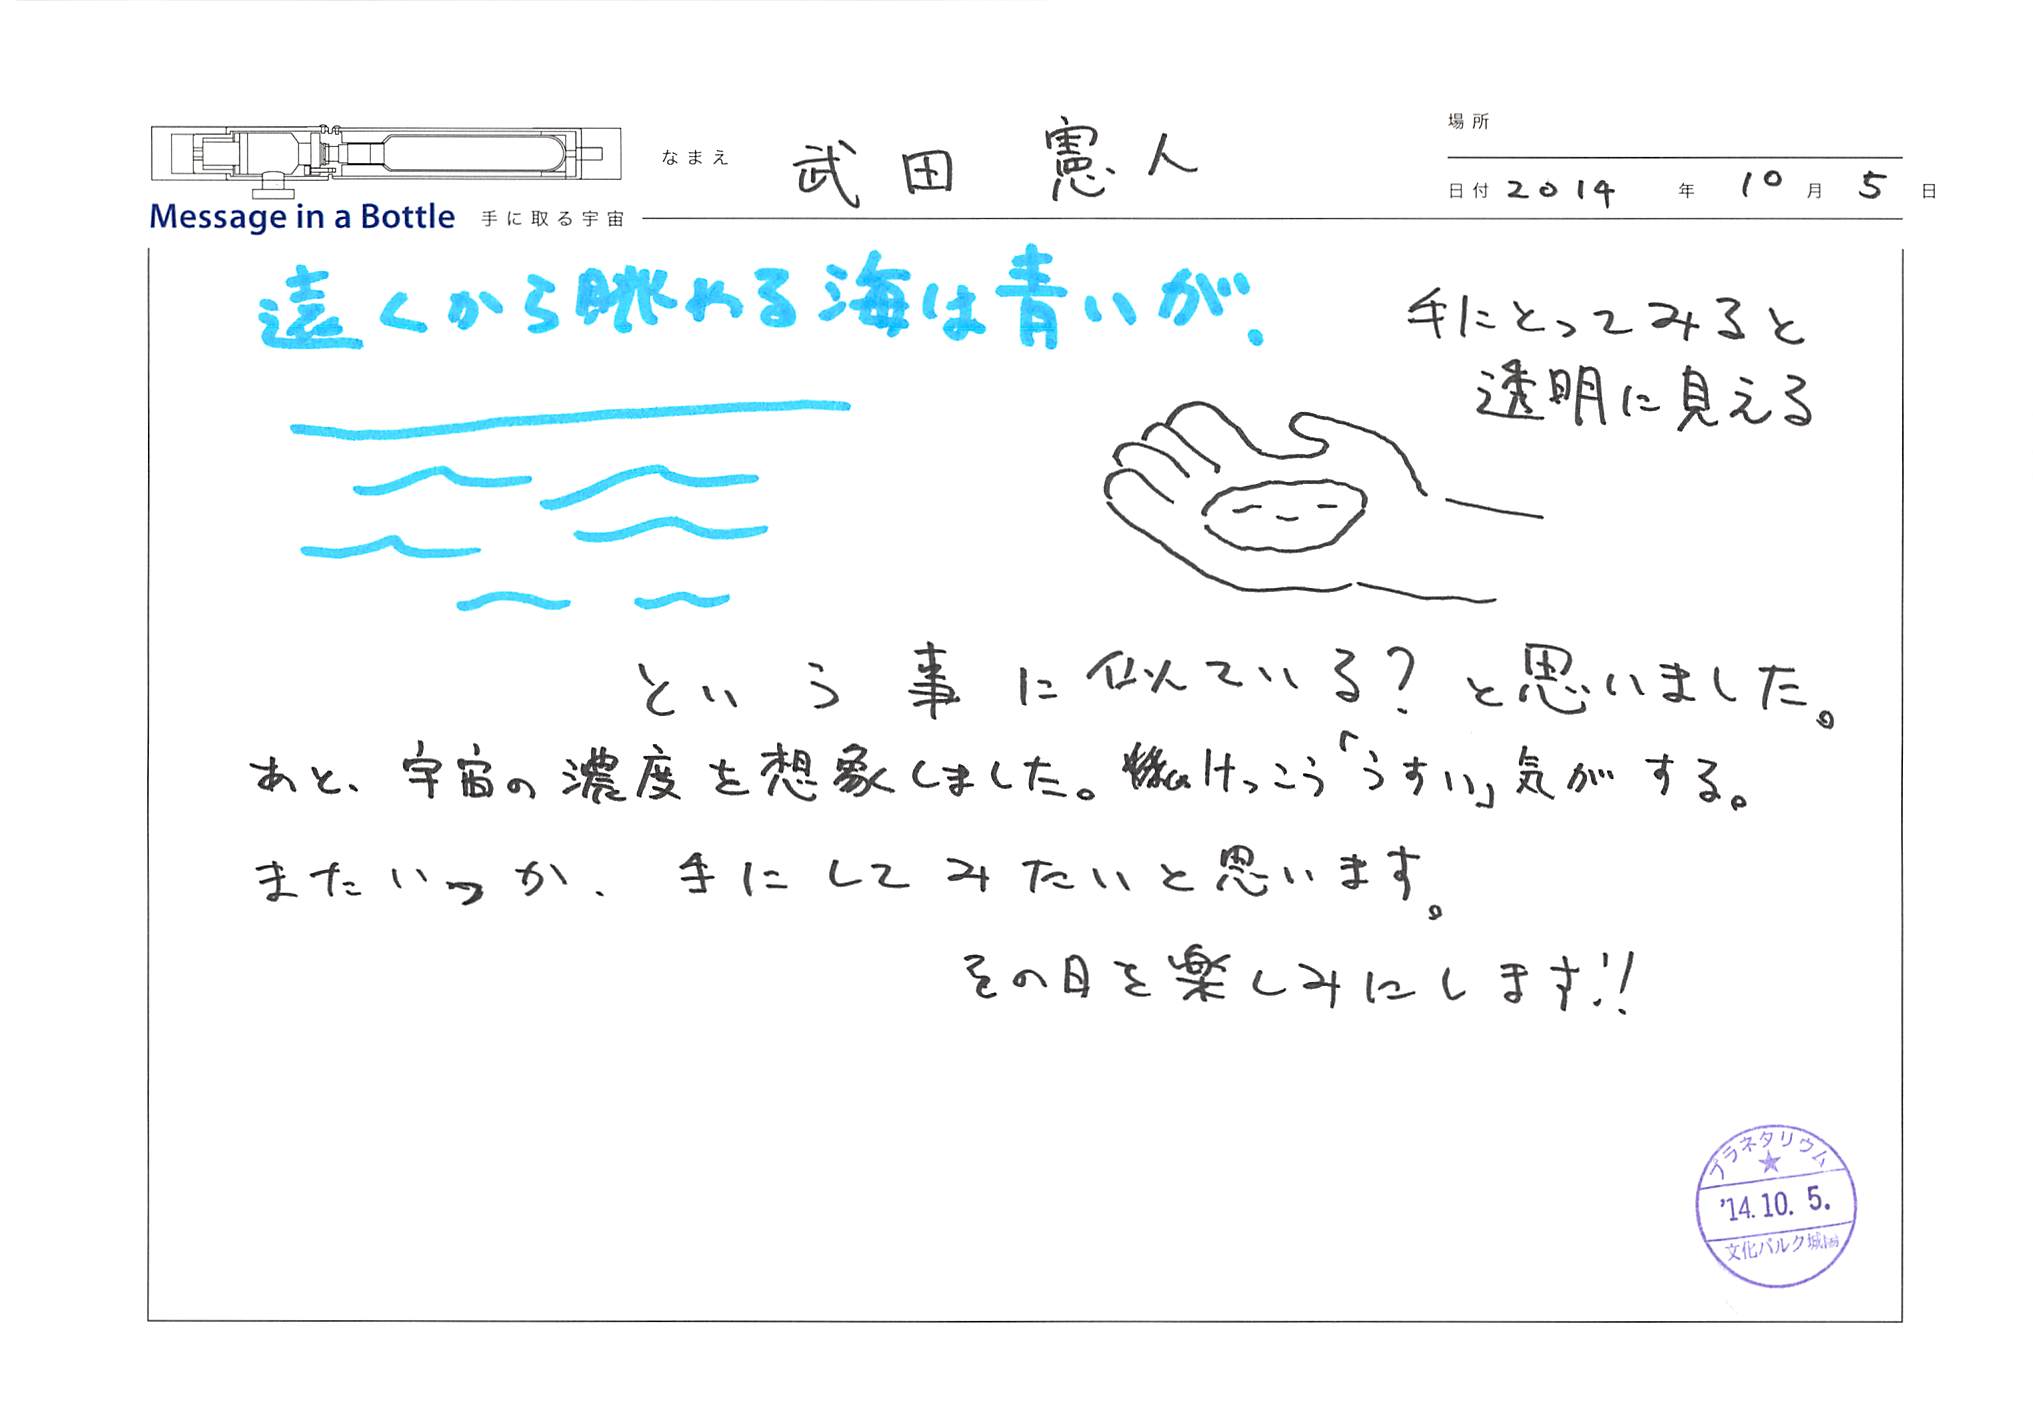 なまえ 武田 憲人
場所
日付 2014 年 10 月 5 日
Message in a Bottle 手に取る宇宙
遠くから眺める海は青いが、
手にとってみると
透明に見える
という事に似ている?と思いました。
あと、宇宙の濃度を想象しました。けっこう「うすい」気がする。
またいつか、手にしてみたいと思います。
その日を楽しみにします!!
プラネタリウム
'14.10.5.
文化パルク城陽